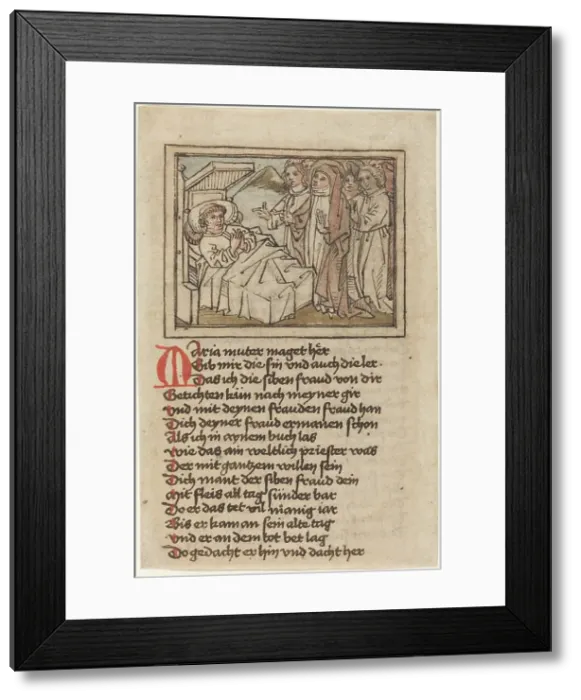 Maria muter maget her
Gib mir die sin vnd auch die ler ·
Das ich die siben fraud von dir
Getichten kün nach meyner gir
vnd mit deynen frauden fraud han
Dich deyner fraud ermanen schon
Als ich in aynem buch las
wie das ain weltlich priester was
Der mit gantzem willen sein
Dich mant der siben fraud dein
mit fleis all tag sunder bar
Do er das tet vil manig iar
Bis er kam an sein alte tag
vnd er an dem tot bet lag
Do gedacht er hin vnd dacht her